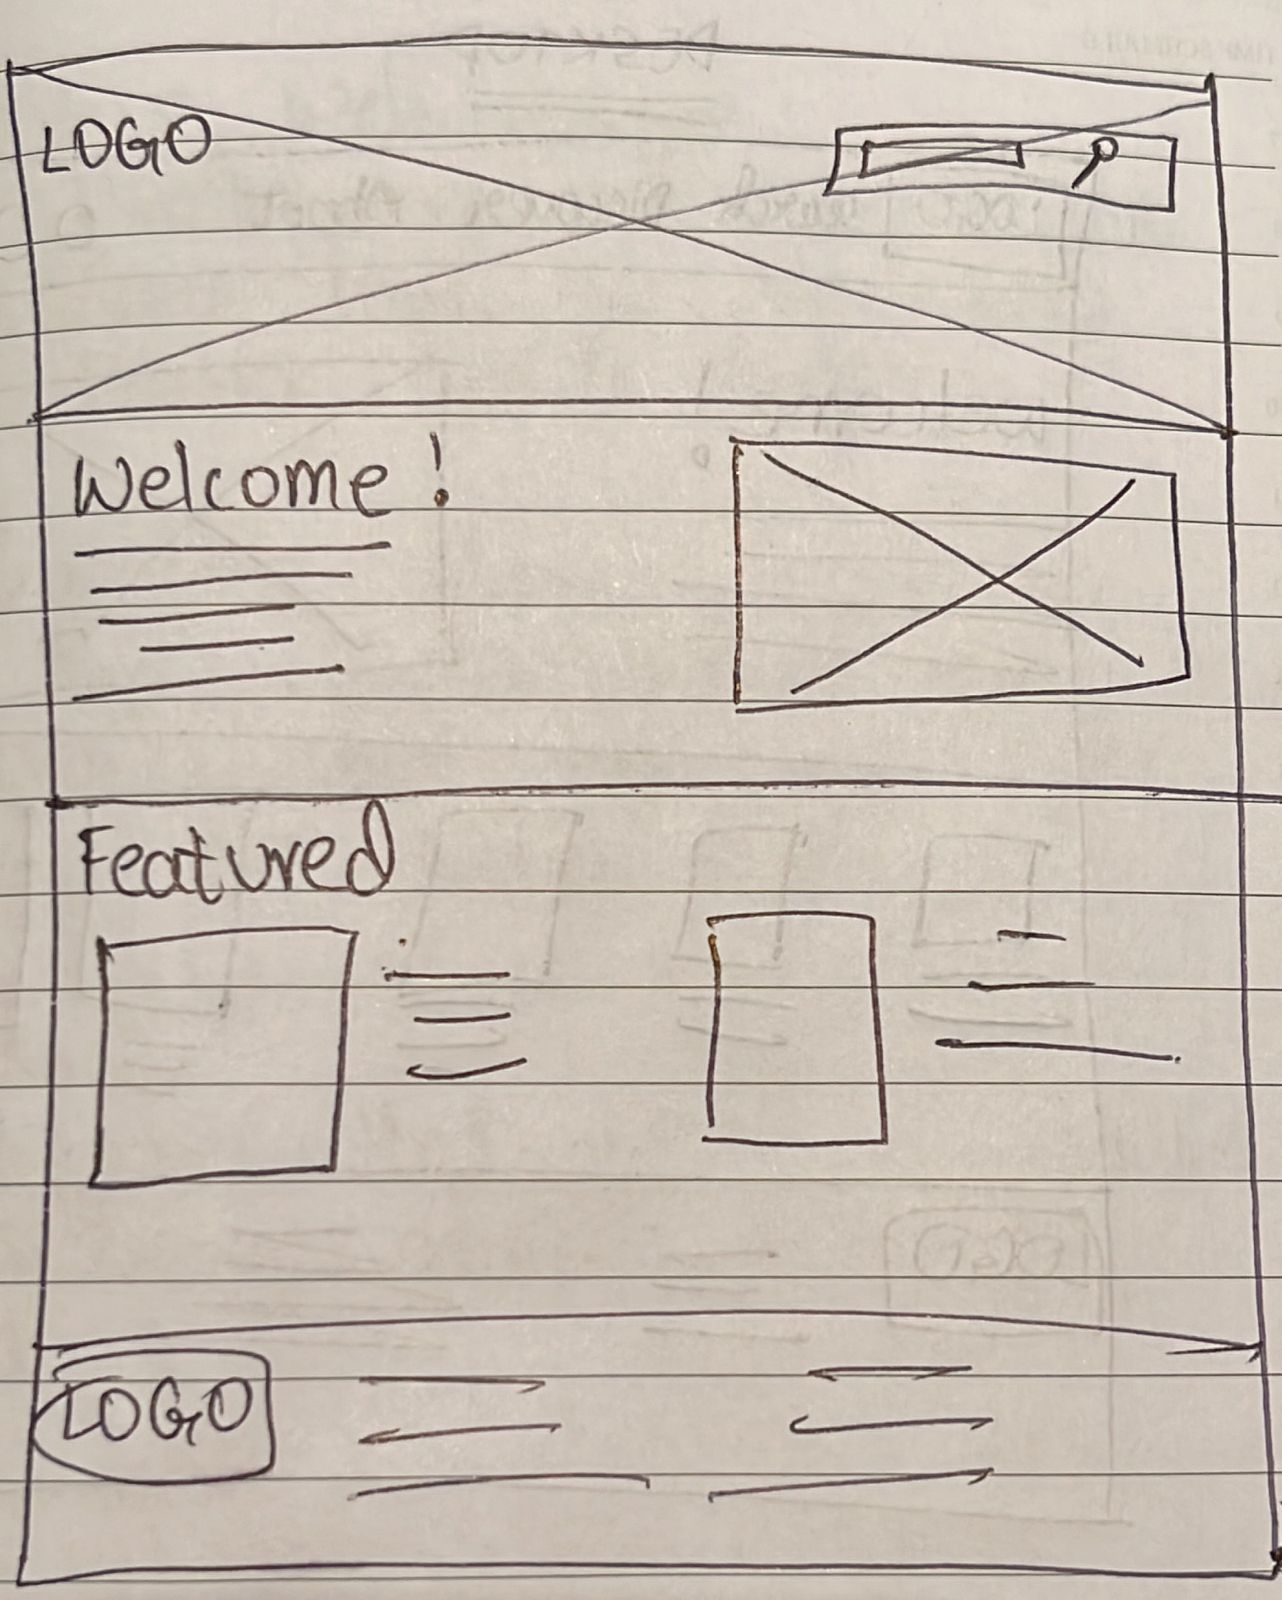 LOGO
Welcome!
Featured
LOGO